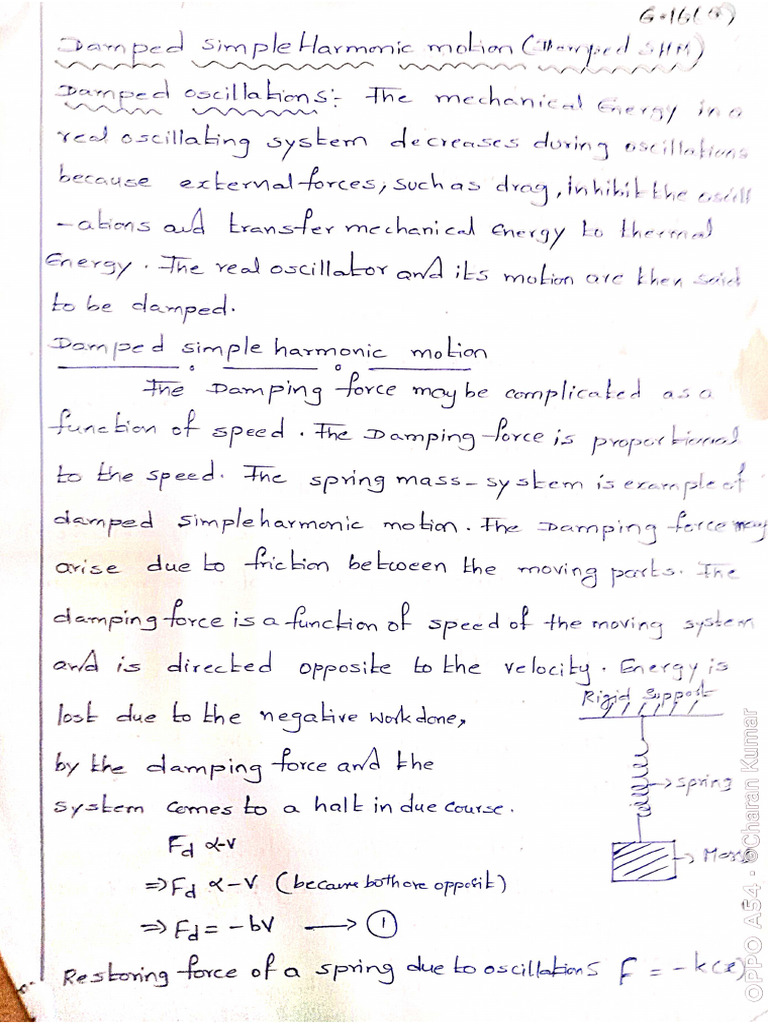 G-16(a)
Damped simple Harmonic motion (Damped SHM)
Damped oscillations:- The mechanical Energy in a
real oscillating system decreases during oscillations
because external forces, such as drag, inhibit the oscill
-ations and transfer mechanical Energy to thermal
Energy. The real oscillator and its motion are then said
to be damped.
Damped simple harmonic motion
The Damping force may be complicated as a
function of speed. The Damping force is proportional
to the speed. The spring mass-system is example of
damped simple harmonic motion. The Damping force may
arise due to friction between the moving parts. The
damping force is a function of speed of the moving system
and is directed opposite to the velocity. Energy is
lost due to the negative work done,
by the damping force and the
system comes to a halt in due course.
Rigid Support
→spring
→Mass
Fd α-v
⇒Fd α-v (because both are opposit)
⇒Fd = -bv → ①
Restoring force of a spring due to oscillations F = -k(x)
OPPO A54 · ©Charan Kumar